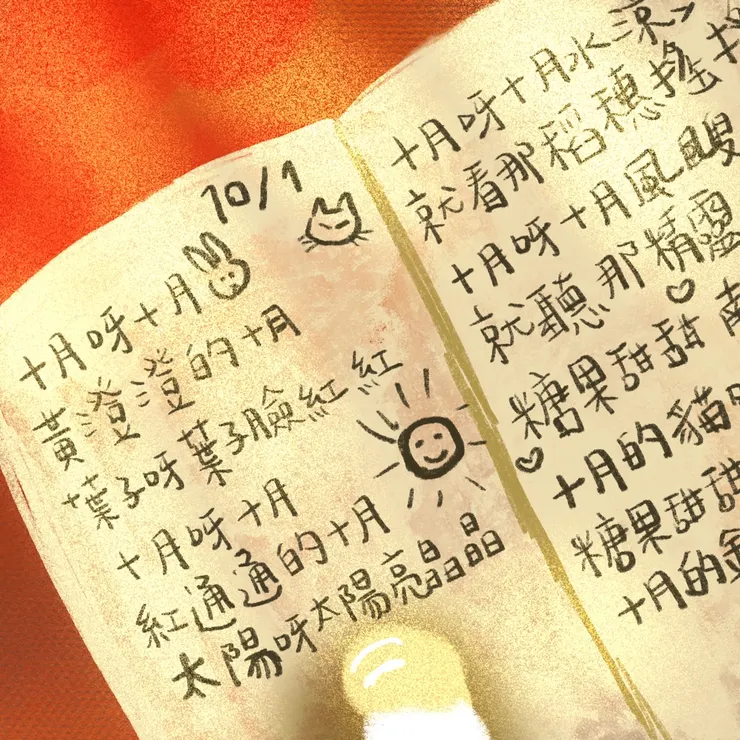 10/1
十月呀十月
黃澄澄的十月
葉子呀葉子臉紅紅
十月呀十月
紅通通的十月
太陽呀太陽亮晶晶
十月呀十月水涼
就看那稻穗搖搖
十月呀十月風颼
就聽那精靈
糖果甜甜 南
十月的貓
糖果甜甜
十月的金